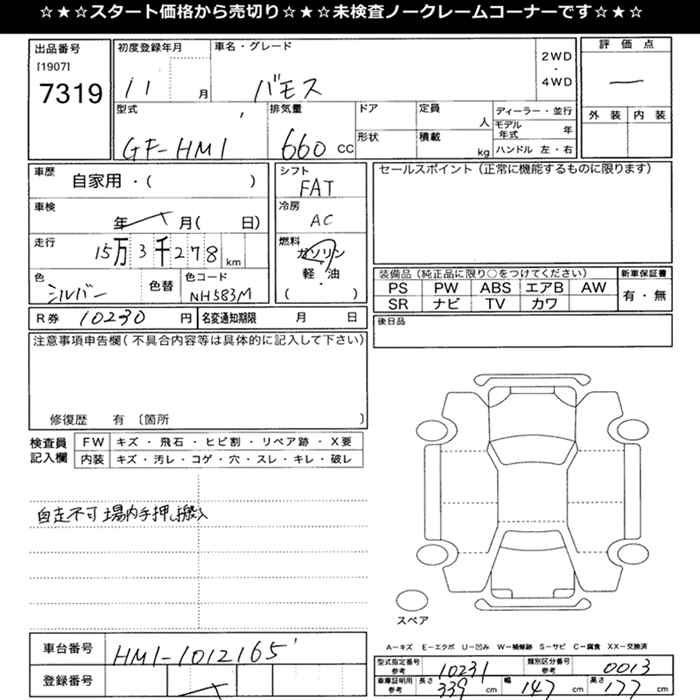 ☆★☆★スタート価格から売切り☆★☆★未検査ノークレームコーナーです☆★☆
出品番号
[1907]
7319
初度登録年月
11 月
車名・グレード
バモス
2WD
・
4WD
評価点
―
外装 内装
型式
GF-HM1
排気量
660 CC
ドア
形状
定員
人
積載
kg
ディーラー・並行
モデル年式 年
ハンドル 左・右
車歴
自家用・( )
車検
年 月( 日)
走行
15万3千278km
色
シルバー
色替
色コード
NH583M
シフト
FAT
冷房
AC
燃料
ガソリン
・
軽・油
( )
セールスポイント(正常に機能するものに限ります)
装備品(純正品に限り○をつけてください)
PS PW ABS エアB AW
SR ナビ TV カワ
新車保証書
有・無
R券 10230 円
名変通知期限 月 日
後日品
注意事項申告欄(不具合内容等は具体的に記入して下さい)
修復歴 有 〔箇所 〕
検査員記入欄
FW キズ・飛石・ヒビ割・リペア跡・X要
内装 キズ・汚レ・コゲ・穴・スレ・キレ・破レ
自走不可 場内手押し搬入
スペア
A−キズ E−エクボ U−凹み W−補修跡 S−サビ C−腐食 XX−交換済
車台番号
HM1-1012165
登録番号
型式指定番号 参考 10231
類別区分番号 参考 0013
車庫証明用 参考 長さ 339 cm 幅 147 cm 高さ 177 cm